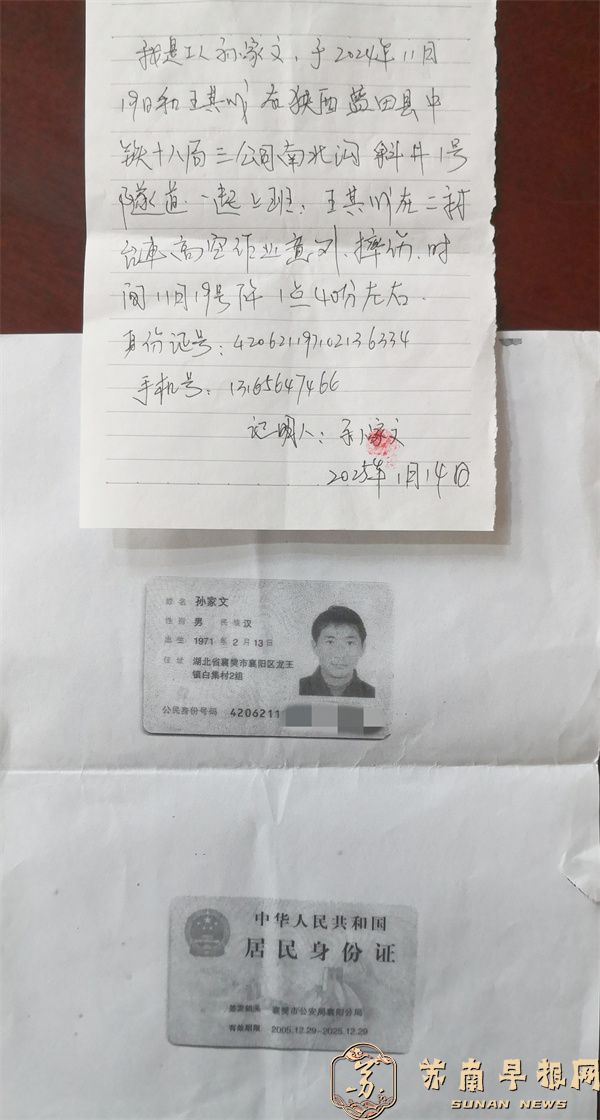 我是工人孙家文，于2024年11月
19日和王其川在狭西蓝田县中
铁十八局三公司南北沟斜井1号
隧道一起上班，王其川在二衬
台車高空作业意外摔伤，时
间11月19号 1点40份左右.
身份证号：420621197102136334
手机号：13165647466
证明人：孙家文
2025年1月14日
姓名 孙家文
性别 男 民族 汉
出生 1971 年 2 月 13 日
住址 湖北省襄樊市襄阳区龙王
镇白集村2组
公民身份号码 4206211
中华人民共和国
居民身份证
签发机关 襄樊市公安局襄阳分局
有效期限 2005.12.29-2025.12.29
苏南早报网
SUNAN NEWS